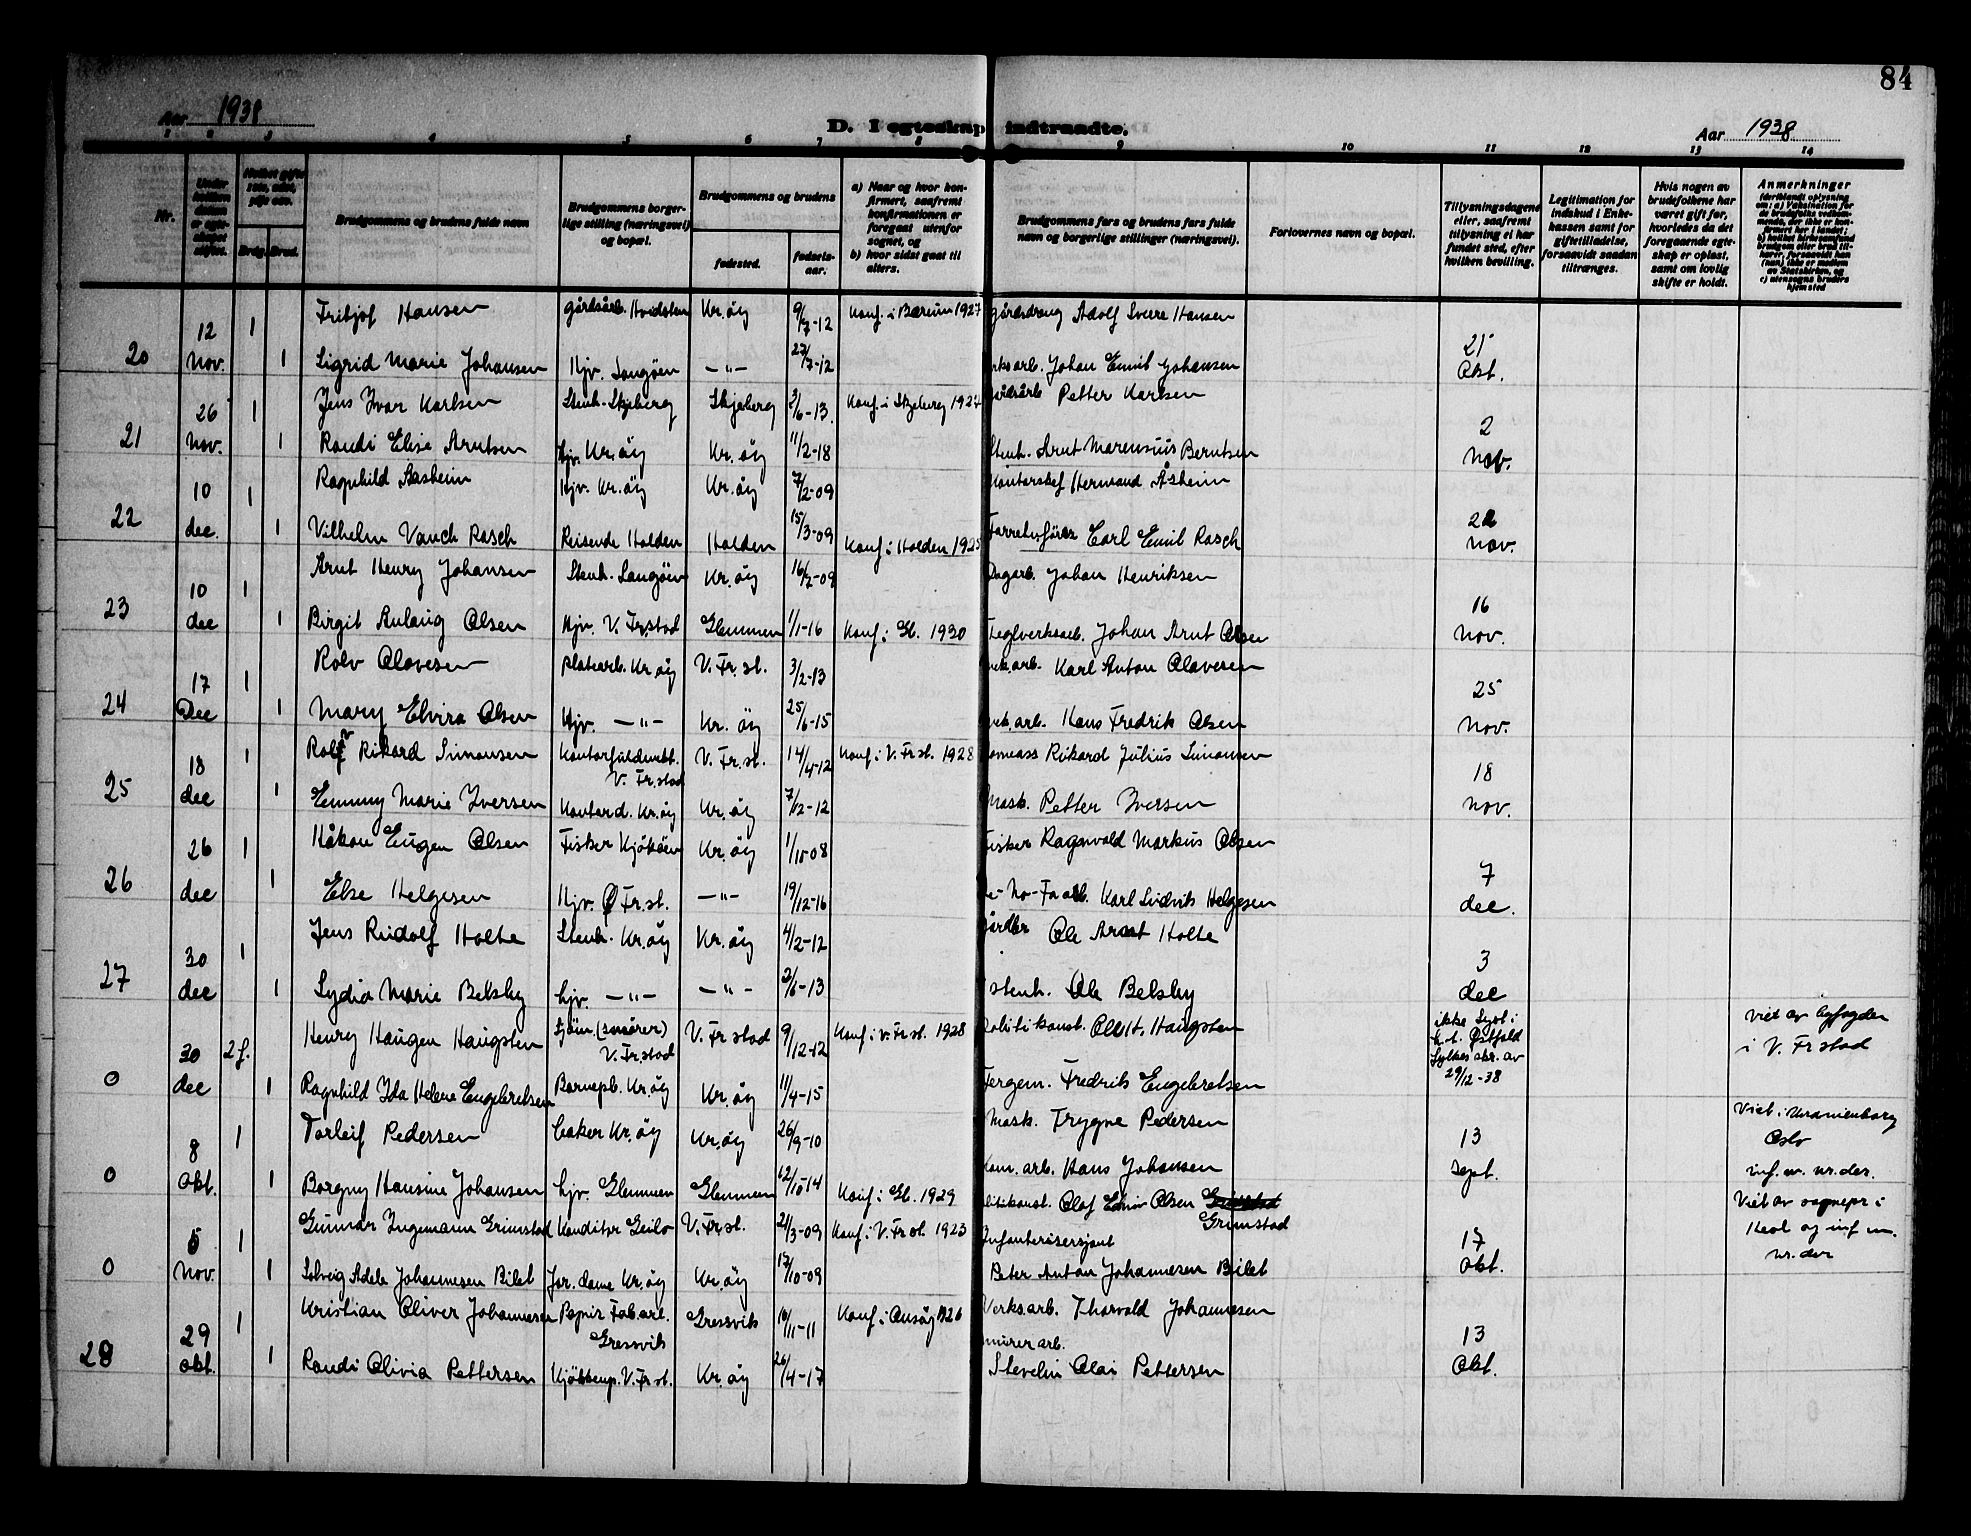 84
Aar 1938
D. I egteskap indtraadte.
Aar 1938
1 2 3 4 5 6 7 8 9 10 11 12 13 14
Nr.
Hvilket gifte 1ste, 2det, 3dje osv.
Brudg. Brud.
Brudgommens og brudens fulde navn
Brudgommens borgerlige stilling (næringsvei) og bopæl.
Brudgommens og brudens
fødested.
fødselsaar.
a) Naar og hvor konfirmert, saafremt konfirmationen er foregaat utenfor sognet, og
b) hvor sidst gaat til alters.
Brudgommens fars og brudens fars fulde navn og borgerlige stillinger (næringsvei).
Forlovernes navn og bopæl.
Tillysningsdagene eller, saafremt tillysning ei har fundet sted, efter hvilken bevilling.
Legitimation for indskud i Enkekassen samt for giftetilladelse, forsaavidt saadan tiltrænges.
Hvis nogen av brudefolkene har været gift før, hvorledes da det foregaaende egteskap er opløst, samt om lovlig skifte er holdt.
Anmerkninger
20 12 Nov. 1 Fritjof Hansen gårdsarb. Hvidsten Kr.øy 9/7-12 Konf. i Bærum 1927 gårdsdreng Adolf Sverre Hansen 25 Okt.
1 Sigrid Marie Johansen Hjv. Langøen —"— 27/7-12 Johan Emil Johansen
21 26 Nov. 1 Jens Ivar Karlsen Stenh. Skjeberg Skjeberg 3/6-13 Konf. i Skjeberg 1927 Petter Karlsen 2 Nov.
1 Randi Elise Arntsen Hjv. Kr.øy Kr.øy 11/2-18 Stenh. Arnt Marensius Berntsen
22 10 dec. 1 Ragnhild Aasheim Hjv. Kr.øy Kr.øy 7/2-09 Kontorchef Hermand Åsheim 22 Nov.
1 Vilhelm Vauch Rasch Reisende Halden Halden 15/3-09 Konf. i Halden 1925 Carl Emil Rasch
23 10 dec 1 Arnt Henry Johansen Stenh. Langøen Kr.øy 16/2-09 Dagarb. Johan Henriksen 16 Nov.
1 Birgit Aulaug Olsen Hjv. V. Fr.stad Glemmen 1/1-16 Konf. i Gl. 1930 Teglverksarb. Johan Arnt Olsen
24 17 Dec 1 Rolv Olavesen Platearb. Kr.øy V. Fr.st. 3/2-13 Karl Anton Olavesen 25 Nov.
1 Mary Elvira Olsen Hjv. —"— Kr. øy 25/6-15 Hans Fredrik Olsen
25 18 dec 1 Rolf Rikard Simonsen Kontorfuldmekt. V. Fr.stad V. Fr.st. 14/4-12 Konf. i V. Fr.st. 1928 Rikard Julius Simonsen 18 Nov.
1 Emmy Marie Iversen Kontord. Kr.øy Kr.øy 7/12-12 Mask. Petter Iversen
26 26 dec 1 Håkon Eugen Olsen Fisker Kjøkøen Kr.øy 1/10-08 Fisker Ragnvald Markus Olsen 7 dec.
1 Else Helgesen Hjv. Ø Fr.st. —"— 19/12-16 Karl Ludvik Helgesen
27 30 dec 1 Jens Rudolf Holte Stenh. Kr.øy Kr.øy 4/2-12 Ole Arnt Holte 3 dec
1 Lydia Marie Belsby hjv. —"— —"— 2/6-13 stenh. Ole Belsby
0 30 dec 2 f. Henry Haugen Haugsten V. Fr.stad V. Fr stad 9/12-12 Konf. i V. Fr.st. 1928 Politikonst. Ole H. Haugsten ikke lyst i h.t. Østfold fylkes skr. av 29/12-38 Viet av byfogden i V. Fr stad
1 Ragnhild Ida Helene Engebretsen Barnepl. Kr.øy Kr.øy 11/4-15 Fergem. Fredrik Engebretsen
0 8 Okt. 1 Torleif Pedersen baker Kr.øy Kr.øy 26/9-10 Mask. Trygve Pedersen 13 sept. Viet i Uranienborg Oslo inf. m. nr. der.
1 Borgny Hansine Johansen hjv. Glemmen Glemmen 12/10-14 Konf. i Gl. 1929 Kom. arb. Hans Johansen
0 5 Nov. 1 Gunnar Ingemann Grimstad Konditor Geilo V. Fr.st. 21/3-09 Konf. i V. Fr st. 1923 Politikonst. Olaf Edvin Olsen Grimstad 17 Okt. Viet av sognepr i Hol og inf m. nr. der
1 Solveig Adele Johannesen Bilet for. dame Kr.øy Kr.øy 17/10-09 Infanterisersjant Peter Anton Johannesen Bilet
28 29 okt. 1 Kristian Oliver Johannesen Papir Fab.arb. Gressvik Gressvik 10/11-11 Konf. i Onsøy 1926 Verks.arb. Thorvald Johannesen 13 Okt.
1 Randi Olivia Pettersen Kjøkkenp. V. Fr.st. Kr.øy 26/4-17 murer arb. Stevelin Olai Pettersen